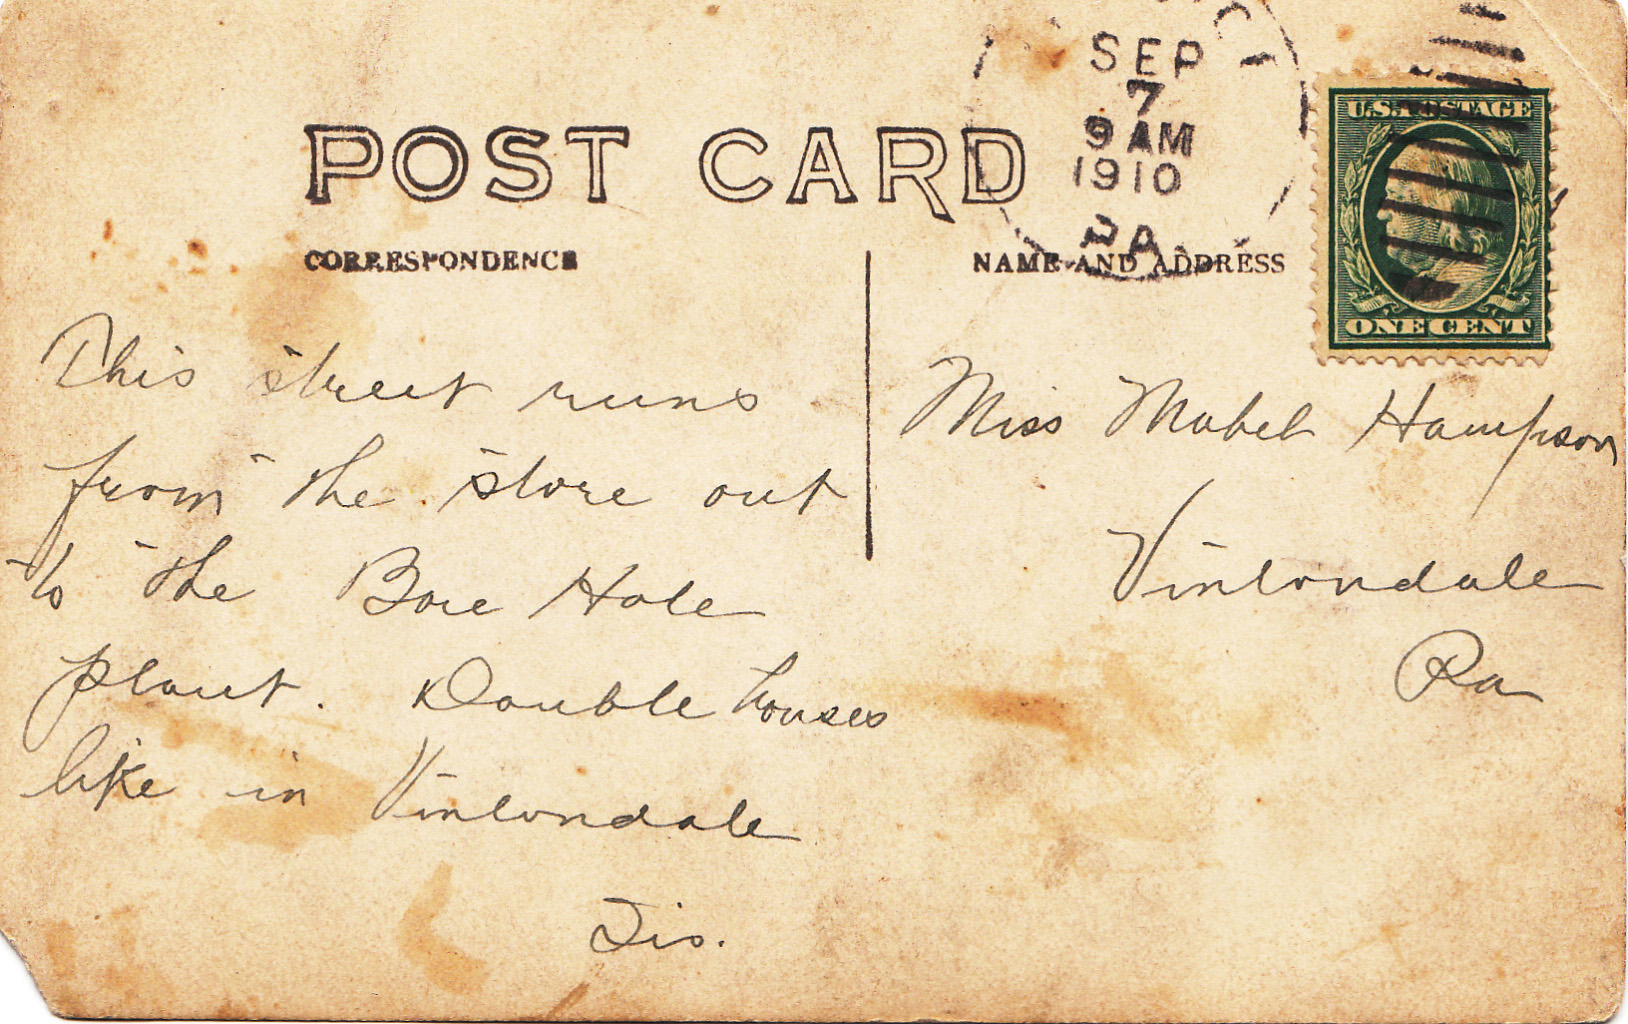 SEP
7
9 AM
1910
PA.
U.S. POSTAGE
ONE CENT
POST CARD
CORRESPONDENCE
NAME AND ADDRESS
This street runs
from the store out
to the Bore Hole
plant. Double houses
like in Vintondale
Sis.
Miss Mabel Hampson
Vintondale
Pa